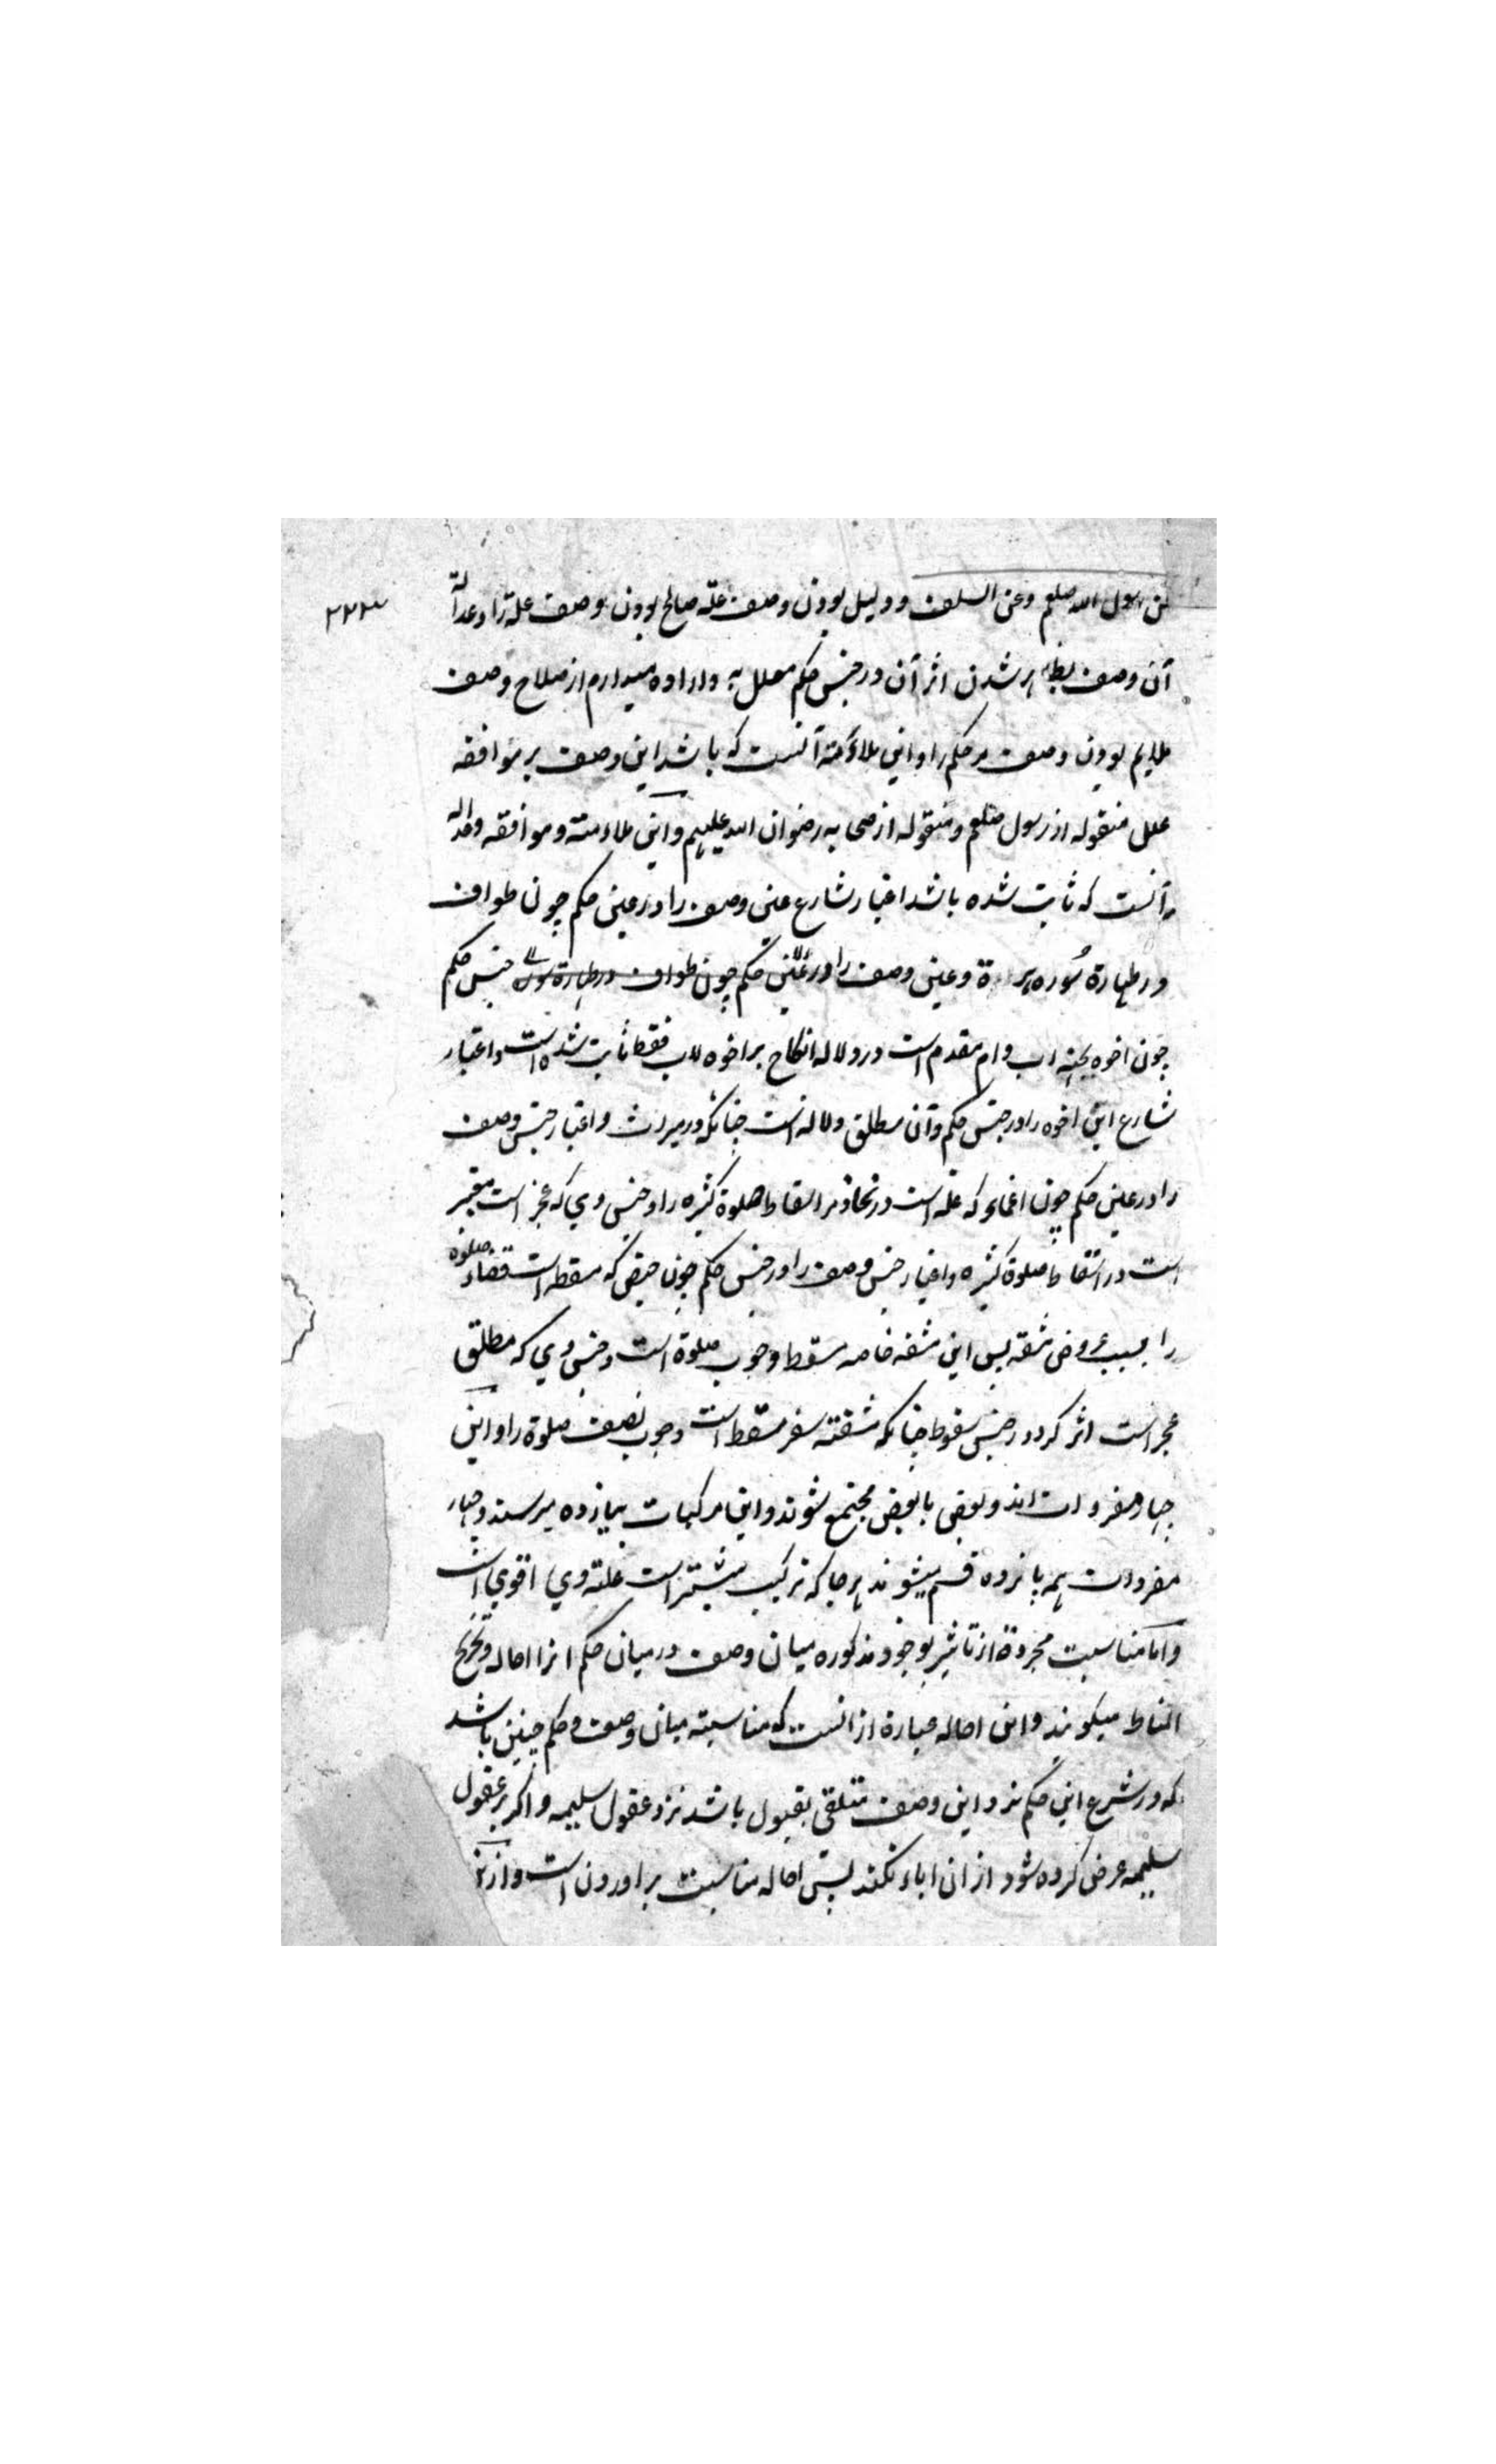 عن رسول الله صلعم وعن السلف و دلیل بودن وصف علة صالح بودن وصف علة را و عدالة
۲۲۳
آن وصف بظاهر شدن اثر آن در جنس حکم معلل به و اراده میدارم از صلاح وصف
ملایم بودن وصف مر حکم را و این ملائمة آنست که باشد این وصف بر موافقه
علل منقوله از رسول صلعم و منقوله از صحابه رضوان الله علیهم و این ملاءمته و موافقه وعدالة
آنست که ثابت شده باشد اعتبار شارع عین وصف را در عین حکم چون طواف
در طهارة سوره هرة و عین وصف را در عین حکم چون طواف در طهارة سور جنس حکم
چون اخوه بجهة اب و ام مقدم است در ولاله انکاح بر اخوه لاب فقط ثابت شده است و اعتبار
شارع این اخوه را در جنس حکم و آن مطلق ولاله است چنانکه در میراث و اعتبار جنس وصف
را در عین حکم چون اغماء که علة است در اسقاط صلوة کثیره را و جنس وي که عجز است معتبر
است در اسقاط صلوة کثیره و اعتبار جنس وصف را در جنس حکم چون حیض که مسقط است قضاء صلوة
را بسبب عروض مشقه پس این مشقه خاصه مسقط وجوب صلوة است و جنس وي که مطلق
عجز است اثر کرد در جنس سقوط چنانکه مشقته سفر مسقط است وجوب نصف صلوة را و این
چهار مفردات اند و بعضی با بعضی مجتمع شوند و این مرکبات بیازده میرسند و چهار
مفردات همه پانزده قسم میشوند هر جا که ترکیب بیشتر است علته وي اقوي است
و اما مناسبت مجرده از تاثیر بوجوه مذکوره میان وصف و درمیان حکم انرا اخاله و تخریج
المناط میکویند و این اخاله عبارة از انست که مناسبته میان وصف و حکم چنین باشد
که در شرع این حکم نزد این وصف متلقی بقبول باشد نزد عقول سلیمه و اکر بر عقول
سلیمه عرض کرده شود از ان اباء نکنند پس اخاله مناسبت براوردن است و از